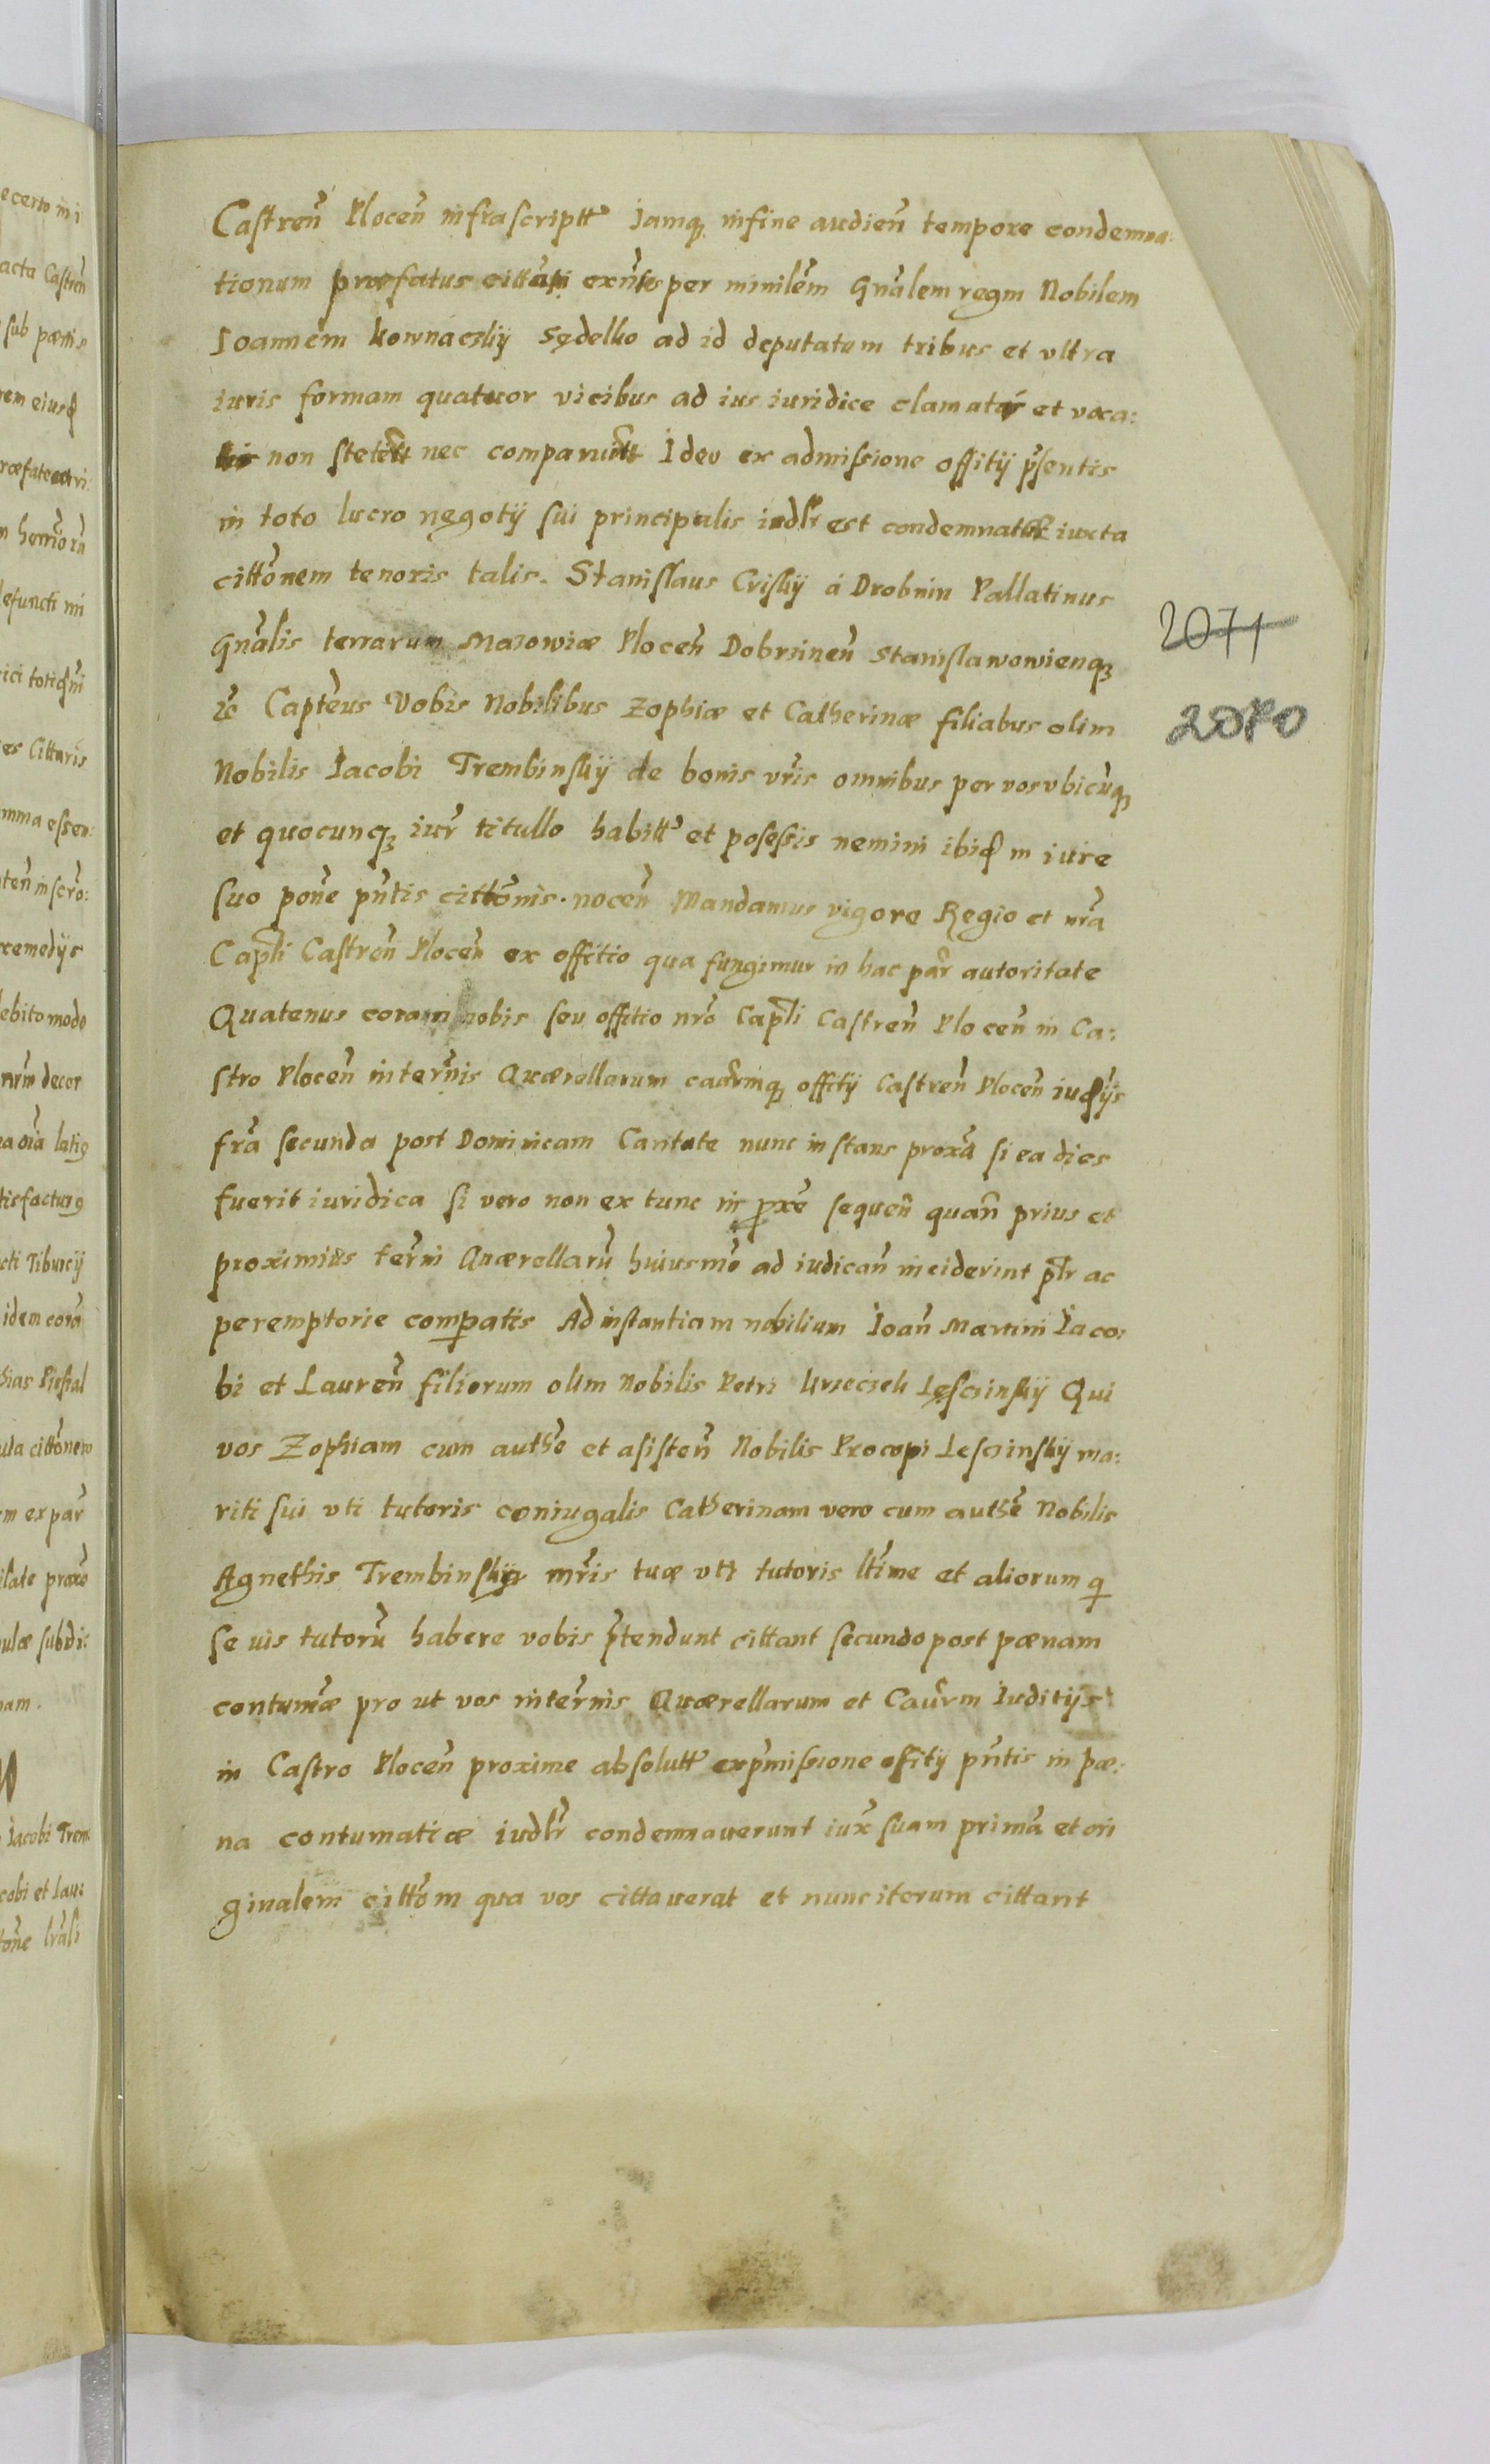 Castreñ Plocen̄ infrascriptt Iamq; in fine audien̄ tempore condemna:
tionum præfatus cittati exn̄tes per minilēm Gnālem regni Nobilem
Ioannem Kownaczkij Sędelko ad id deputatum tribus et vltra
iuris formam quatuor vicibus ad ius iuridice clamatæ et voca:
non stetertt nec comparuertt Ideo ex admissione offitij pŝentis
in toto lucro negotij sui principalis iudlr est condemnatæ iuxta
cittōnem tenoris talis. Stanislaus Criskij á Drobnin Pallatinus
Gnālis terrarum Mazowiæ Plocen̄ Dobrzinen̄ Stanislawowienq;
zc̄ Captēus Vobis Nobilibus Zophiæ et Catherinæ filiabus olim
Nobilis Iacobi Trembinskij de bonis vrīs omnibus per vos vbicūq;
et quocunq; iur̄ titullo habitt et posessis nemini ibidm iure
suo pon̄e pn̄tis cittōnis. nocen̄ Mandamus vigore Regio et nrā
Capl̄i Castren̄ Plocen̄ ex offitio qua fungimur in hac par̄ autoritate
Quatenus coram nobis seu offitio nrō Capl̄i Castren̄ Plocen̄ in Ca:
stro Plocen̄ in ter̄nis Quærellarum caūrmq; offitij Castren̄ Plocen̄ iudijs
fr̄a secunda post Dominicam Cantate nunc instans proxā si ea dies
fuerit iuridica si vero non ex tunc in p̄xe sequen̄ quan̄ prius et
proximius ter̄ni Quærellarū huiusmō ad iudican̄ inciderint pl̄r ac
peremptorie compatis Ad instantiam nobilium Ioan̄ Martini Iaco:
bi et Lauren̄ filiorum olim Nobilis Petri Krzeczek Lęsczinskij Qui
vos Zophiam cum authē et asisten̄ Nobilis Procopi Lesczinskij ma:
riti sui vti tutoris coniugalis Catherinam vero cum authē Nobilis
Agnethis Trembinskij mr̄is tuæ vti tutoris ltīme et aliorum q
se uis tutorū habere vobis p̄tendunt cittant secundo post pænam
contumæ pro ut vos in ter̄nis Quærellarum et Caur̄m Iuditijs
in Castro Plocen̄ proxime absolutt exp̄missione offitij pn̄tis in pæ:
na contumatiæ iudlr condemnauerunt iux̄ suam primā et ori
ginalem cittōm qua vos cittauerat et nunc iterum cittant
2071
2080